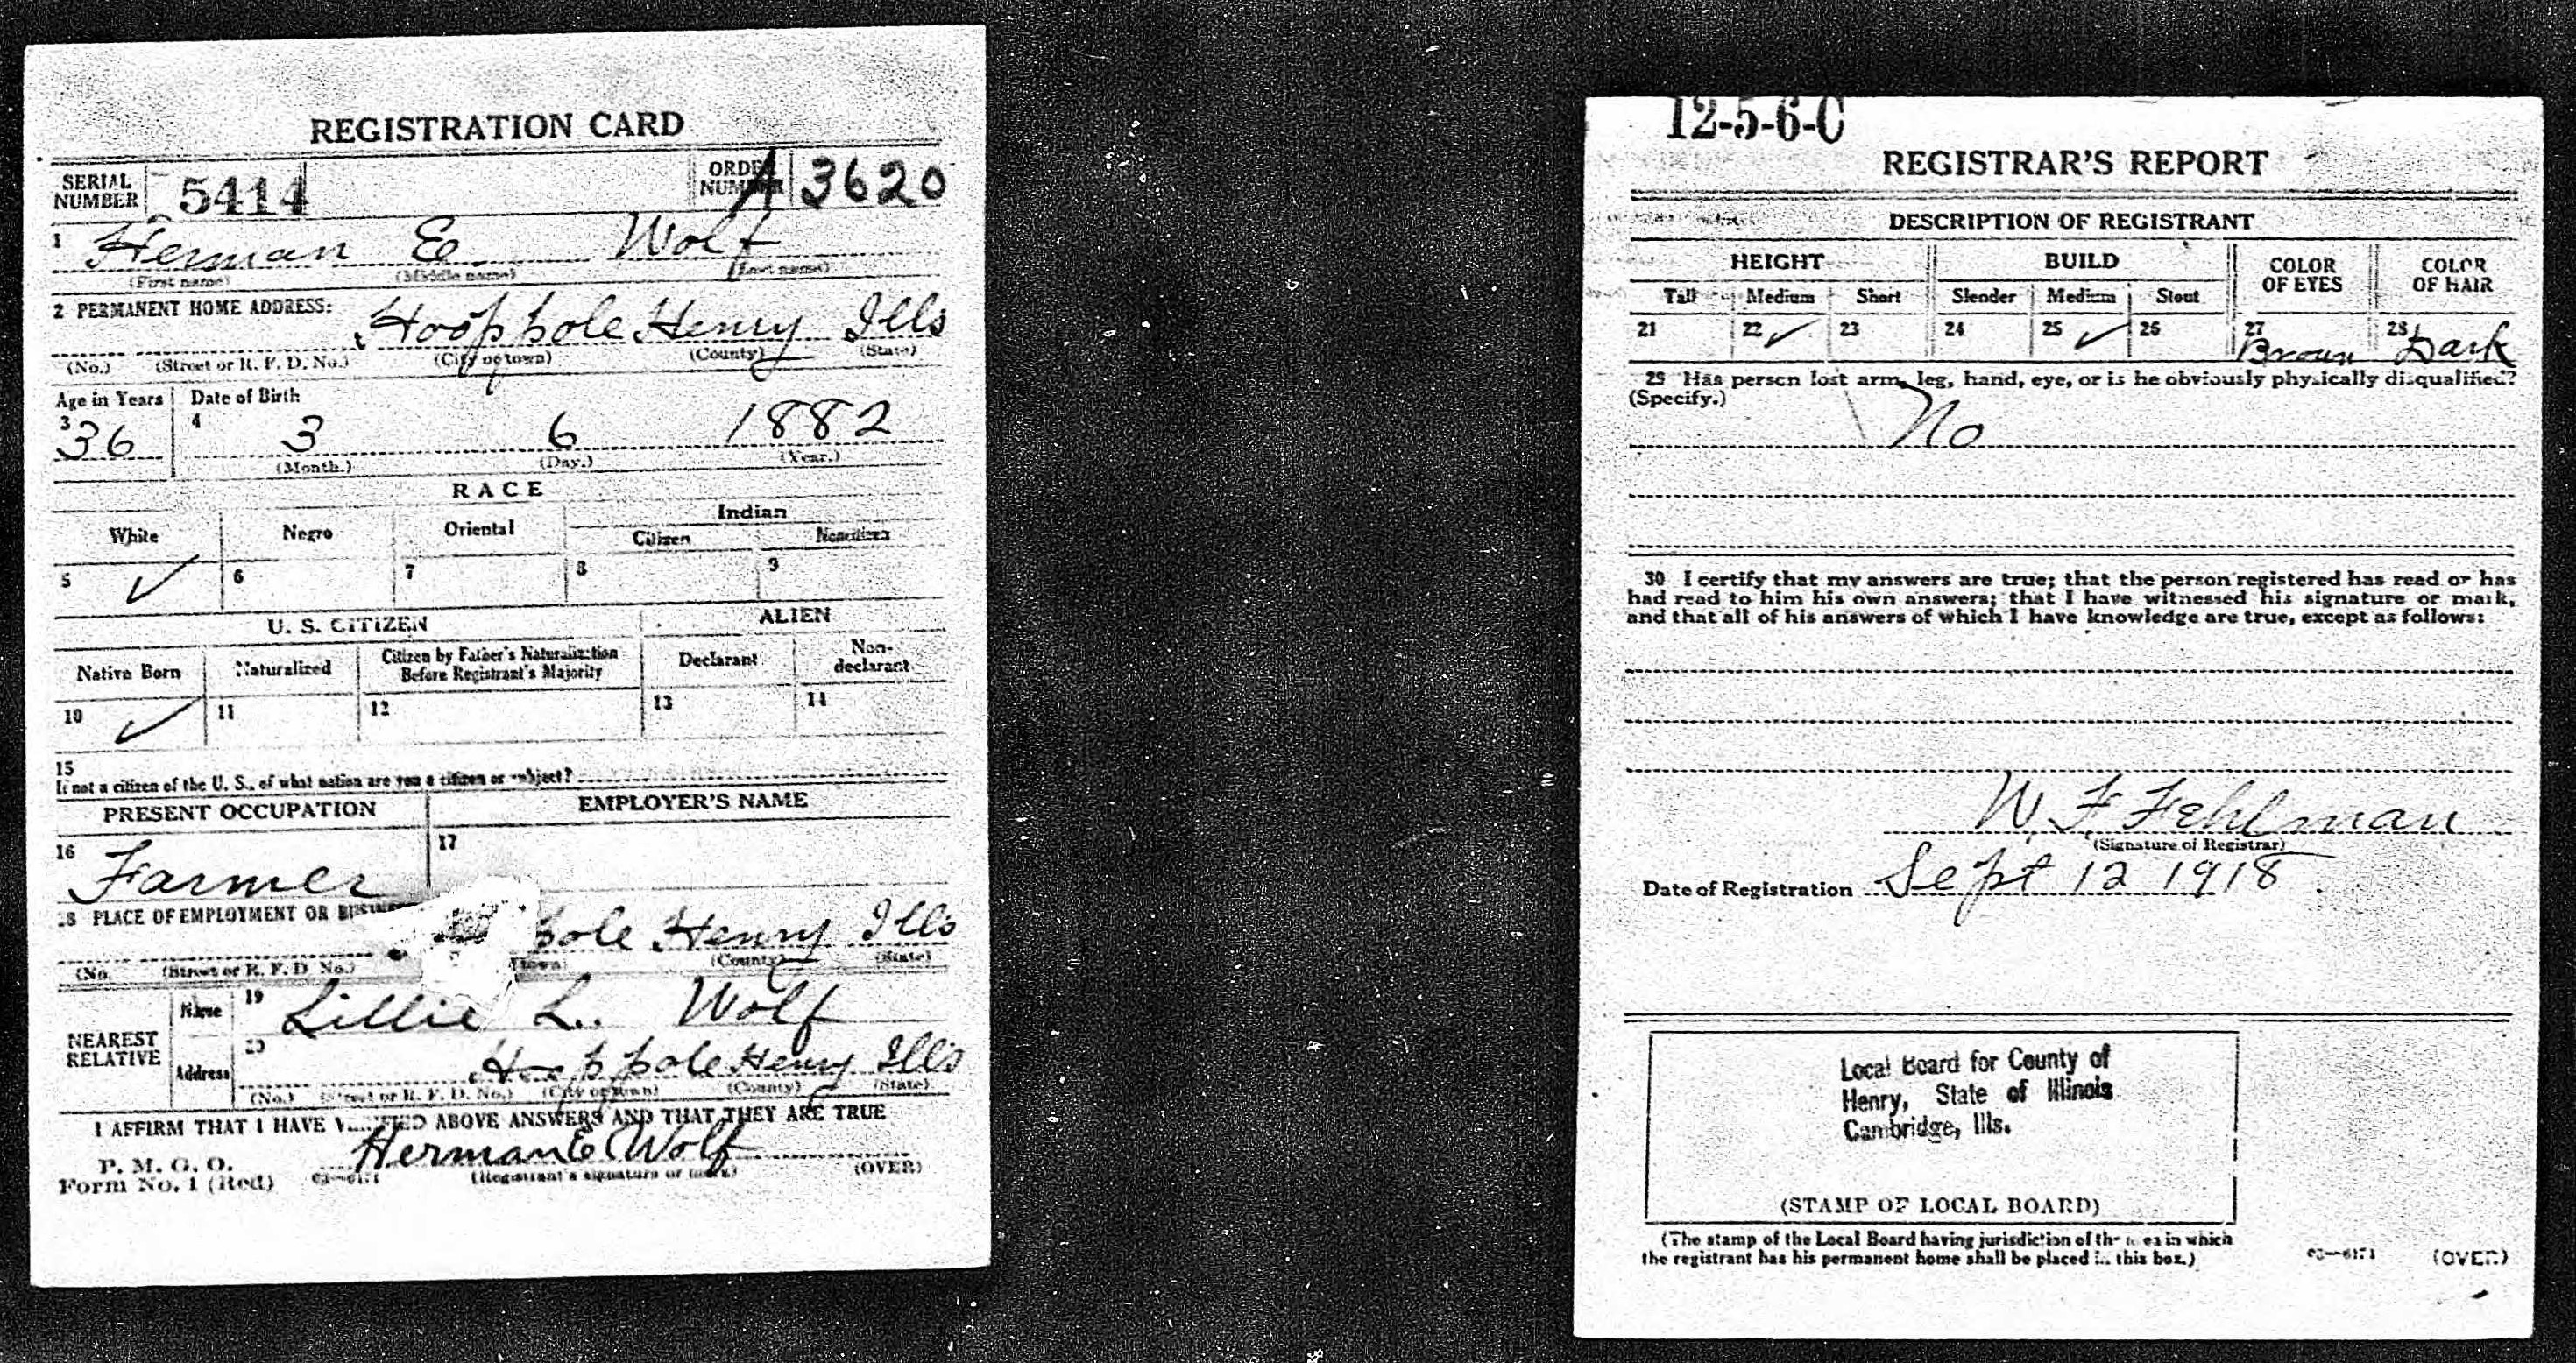 REGISTRATION CARD
SERIAL NUMBER 5414 ORDER NUMBER A 3620
1 Herman E. Wolf
(First name) (Middle name) (Last name)
2 PERMANENT HOME ADDRESS:
Hooppole Henry Ills
(No.) (Street or R. F. D. No.) (City or town) (County) (State)
Age in Years Date of Birth
3 36 4 3 6 1882
(Month.) (Day.) (Year.)
RACE
White Negro Oriental Indian
Citizen Noncitizen
5 ✓ 6 7 8 9
U. S. CITIZEN ALIEN
Native Born Naturalized Citizen by Father's Naturalization Before Registrant's Majority Declarant Non-declarant
10 ✓ 11 12 13 14
15
If not a citizen of the U. S., of what nation are you a citizen or subject?
PRESENT OCCUPATION EMPLOYER'S NAME
16 Farmer 17
18 PLACE OF EMPLOYMENT OR
pole Henry Ills
(No. (Street or R. F. D. No.) town) (County) (State)
NEAREST RELATIVE
Name 19 Lillie L. Wolf
Address 20 Hooppole Henry Ills
(No.) (Street or R. F. D. No.) (City or town) (County) (State)
I AFFIRM THAT I HAVE ABOVE ANSWERS AND THAT THEY ARE TRUE
P. M. G. O.
Form No. 1 (Red) Herman E Wolf
(Registrant's signature or mark) (OVER)
12-5-6-C
REGISTRAR'S REPORT
DESCRIPTION OF REGISTRANT
HEIGHT BUILD COLOR OF EYES COLOR OF HAIR
Tall Medium Short Slender Medium Stout
21 22 ✓ 23 24 25 ✓ 26 27 Brown 28 Dark
29 Has person lost arm, leg, hand, eye, or is he obviously physically disqualified?
(Specify.)
No
30 I certify that my answers are true; that the person registered has read or has
had read to him his own answers; that I have witnessed his signature or mark,
and that all of his answers of which I have knowledge are true, except as follows:
W. F. Fehlman
(Signature of Registrar)
Date of Registration Sept 12 1918
Local Board for County of
Henry, State of Illinois
Cambridge, Ills.
(STAMP OF LOCAL BOARD)
(The stamp of the Local Board having jurisdiction of the area in which
the registrant has his permanent home shall be placed in this box.)
03—6171 (OVER)